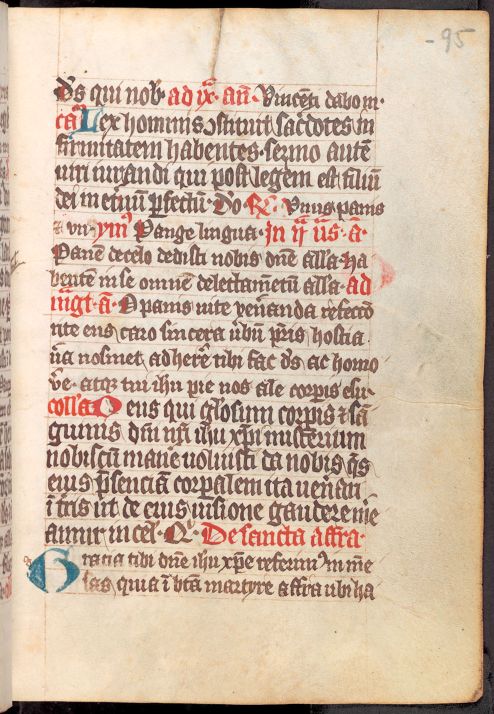 -95
ds qui nob ad ix añ Vincēti dabo m
ca Lex homines ɔstituit sac̄dotes in
firmitatem habentes sermo autē
iuri iurandi qui post legem est filiū
dei in etnū ꝑfectū Do R Vnus panis
⁊ vn ymˢ Pange lingua In ii ūs a
Panē de celo dedisti nobis dñe alla ha
bentē in se omnē delectamētū alla ad
mgt a O panis vite veñanda refecc̄o
nte eius caro sincera v̄bū pr̄is hostia
v̄a nosmet adherē tibi fac ds ac homo
ve atqꝫ tui ihu pie nos ale corpis esu
colla Deus qui gl̓osum corpis ⁊ sā
guinis dñi nr̄i ihu xp̄i misterium
nobiscū mane voluisti da nobis qs
eius p̄senciā corꝑalem ita veñari
i tr̄is ut de eius visione gaudere me
amur in cel Qi De sancta affra
Gracia tibi dñe ihu xp̄e referim in me
las quia i btā martyre affra ubi ha